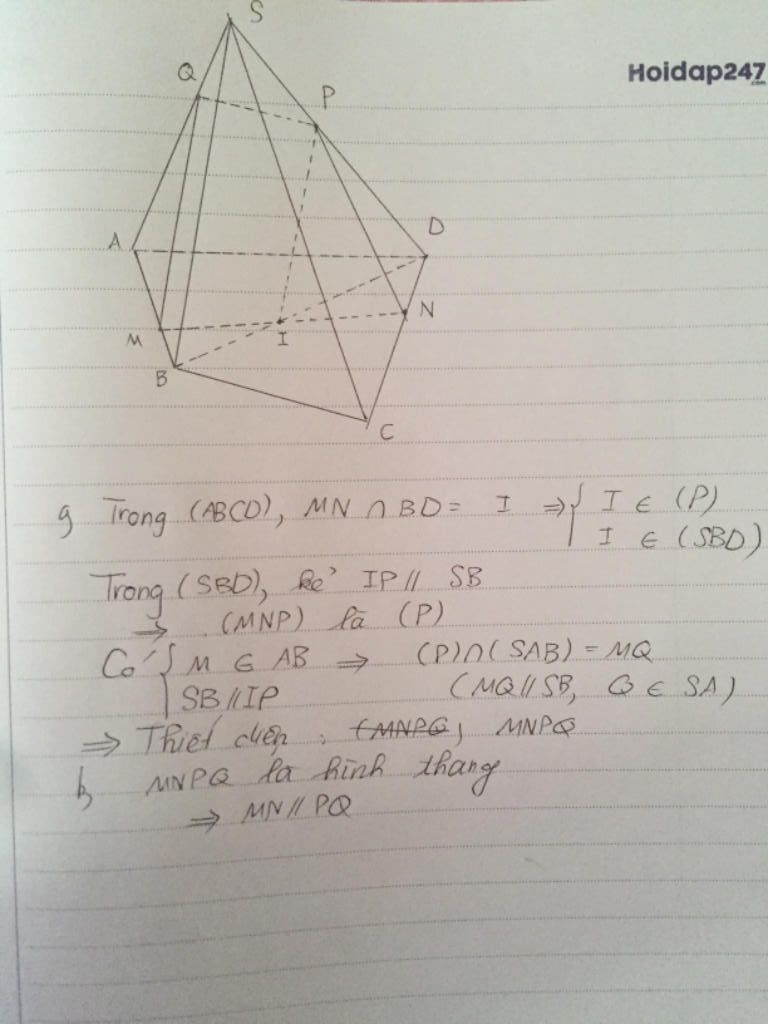 S
Hoidap247
.com
Q
P
A
D
M
I
N
B
C
a, Trong (ABCD), MN ∩ BD = I ⇒ { I ∈ (P)
I ∈ (SBD)
Trong (SBD), kẻ IP // SB
⇒ (MNP) là (P)
Có { M ∈ AB ⇒ (P) ∩ (SAB) = MQ
SB // IP (MQ // SB, Q ∈ SA)
⇒ Thiết diện : (MNPQ) MNPQ
b, MNPQ là hình thang
⇒ MN // PQ